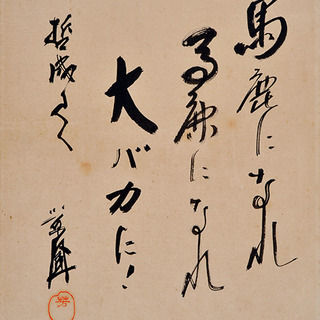 馬鹿になれ
馬鹿になれ
大バカに！
哲盛くん